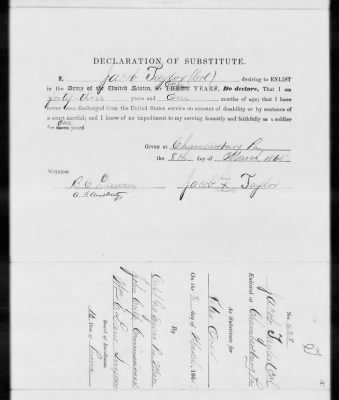 DECLARATION OF SUBSTITUTE.
I, Jacob Taylor (Col) desiring to ENLIST
in the Army of the United States, for THREE YEARS, Do declare, That I am
forty three years and One months of age; that I have
never been discharged from the United States service on account of disability or by sentence of
a court martial; and I know of no impediment to my serving honestly and faithfully as a soldier
for One years.
GIVEN at Chambersburg Pa
the 8th day of March 1865
WITNESS:
Jacob X Taylor
No.
Jacob Taylor Col
Enlisted at Chambersburg Pa
As Substitute for
On the 8 day of March, 186
By
Board of Enrolment,
16 Dist. of Penna